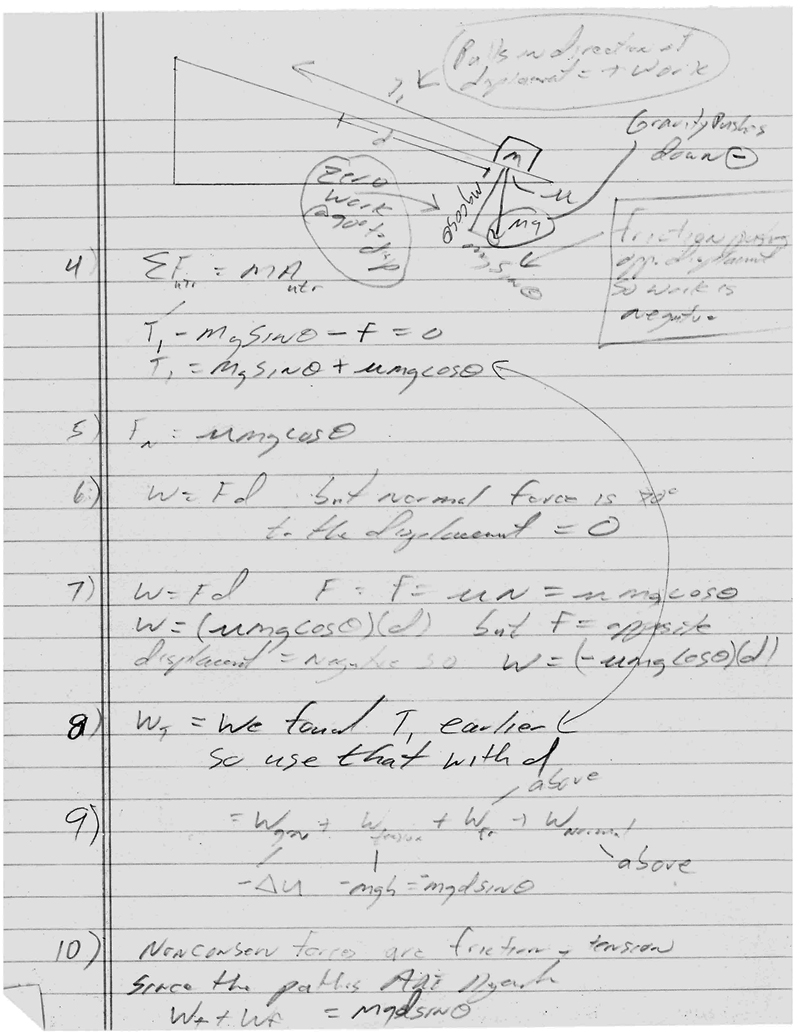 Pulls in direction of
displacment = + work
T₁
Gravity Pushes
down ⊖
d
m
Zero
work
@ 90° to
disp
mgcosθ
μ
mg
mgsinθ
Friction pushing
opp. displacment
so work is
negative
4) ΣF = mA
T₁ - mgsinθ - F = 0
T₁ = mgsinθ + μmgcosθ
5) F_N = μmgcosθ
6) W = Fd but normal force is 90°
to the displacment = 0
7) W = Fd F = F = μN = μmgcosθ
W = (μmgcosθ)(d) but F = opposite
displacment = negative so W = (-μmgcosθ)(d)
8) W_T = We found T₁ earlier
so use that with d
above
9) = W_grav + W_tension + W_fr + W_normal
above
-ΔU -mgh = -mgdsinθ
10) Nonconserv forces are friction + tension
Since the paths
W_T + W_F = mgdsinθ